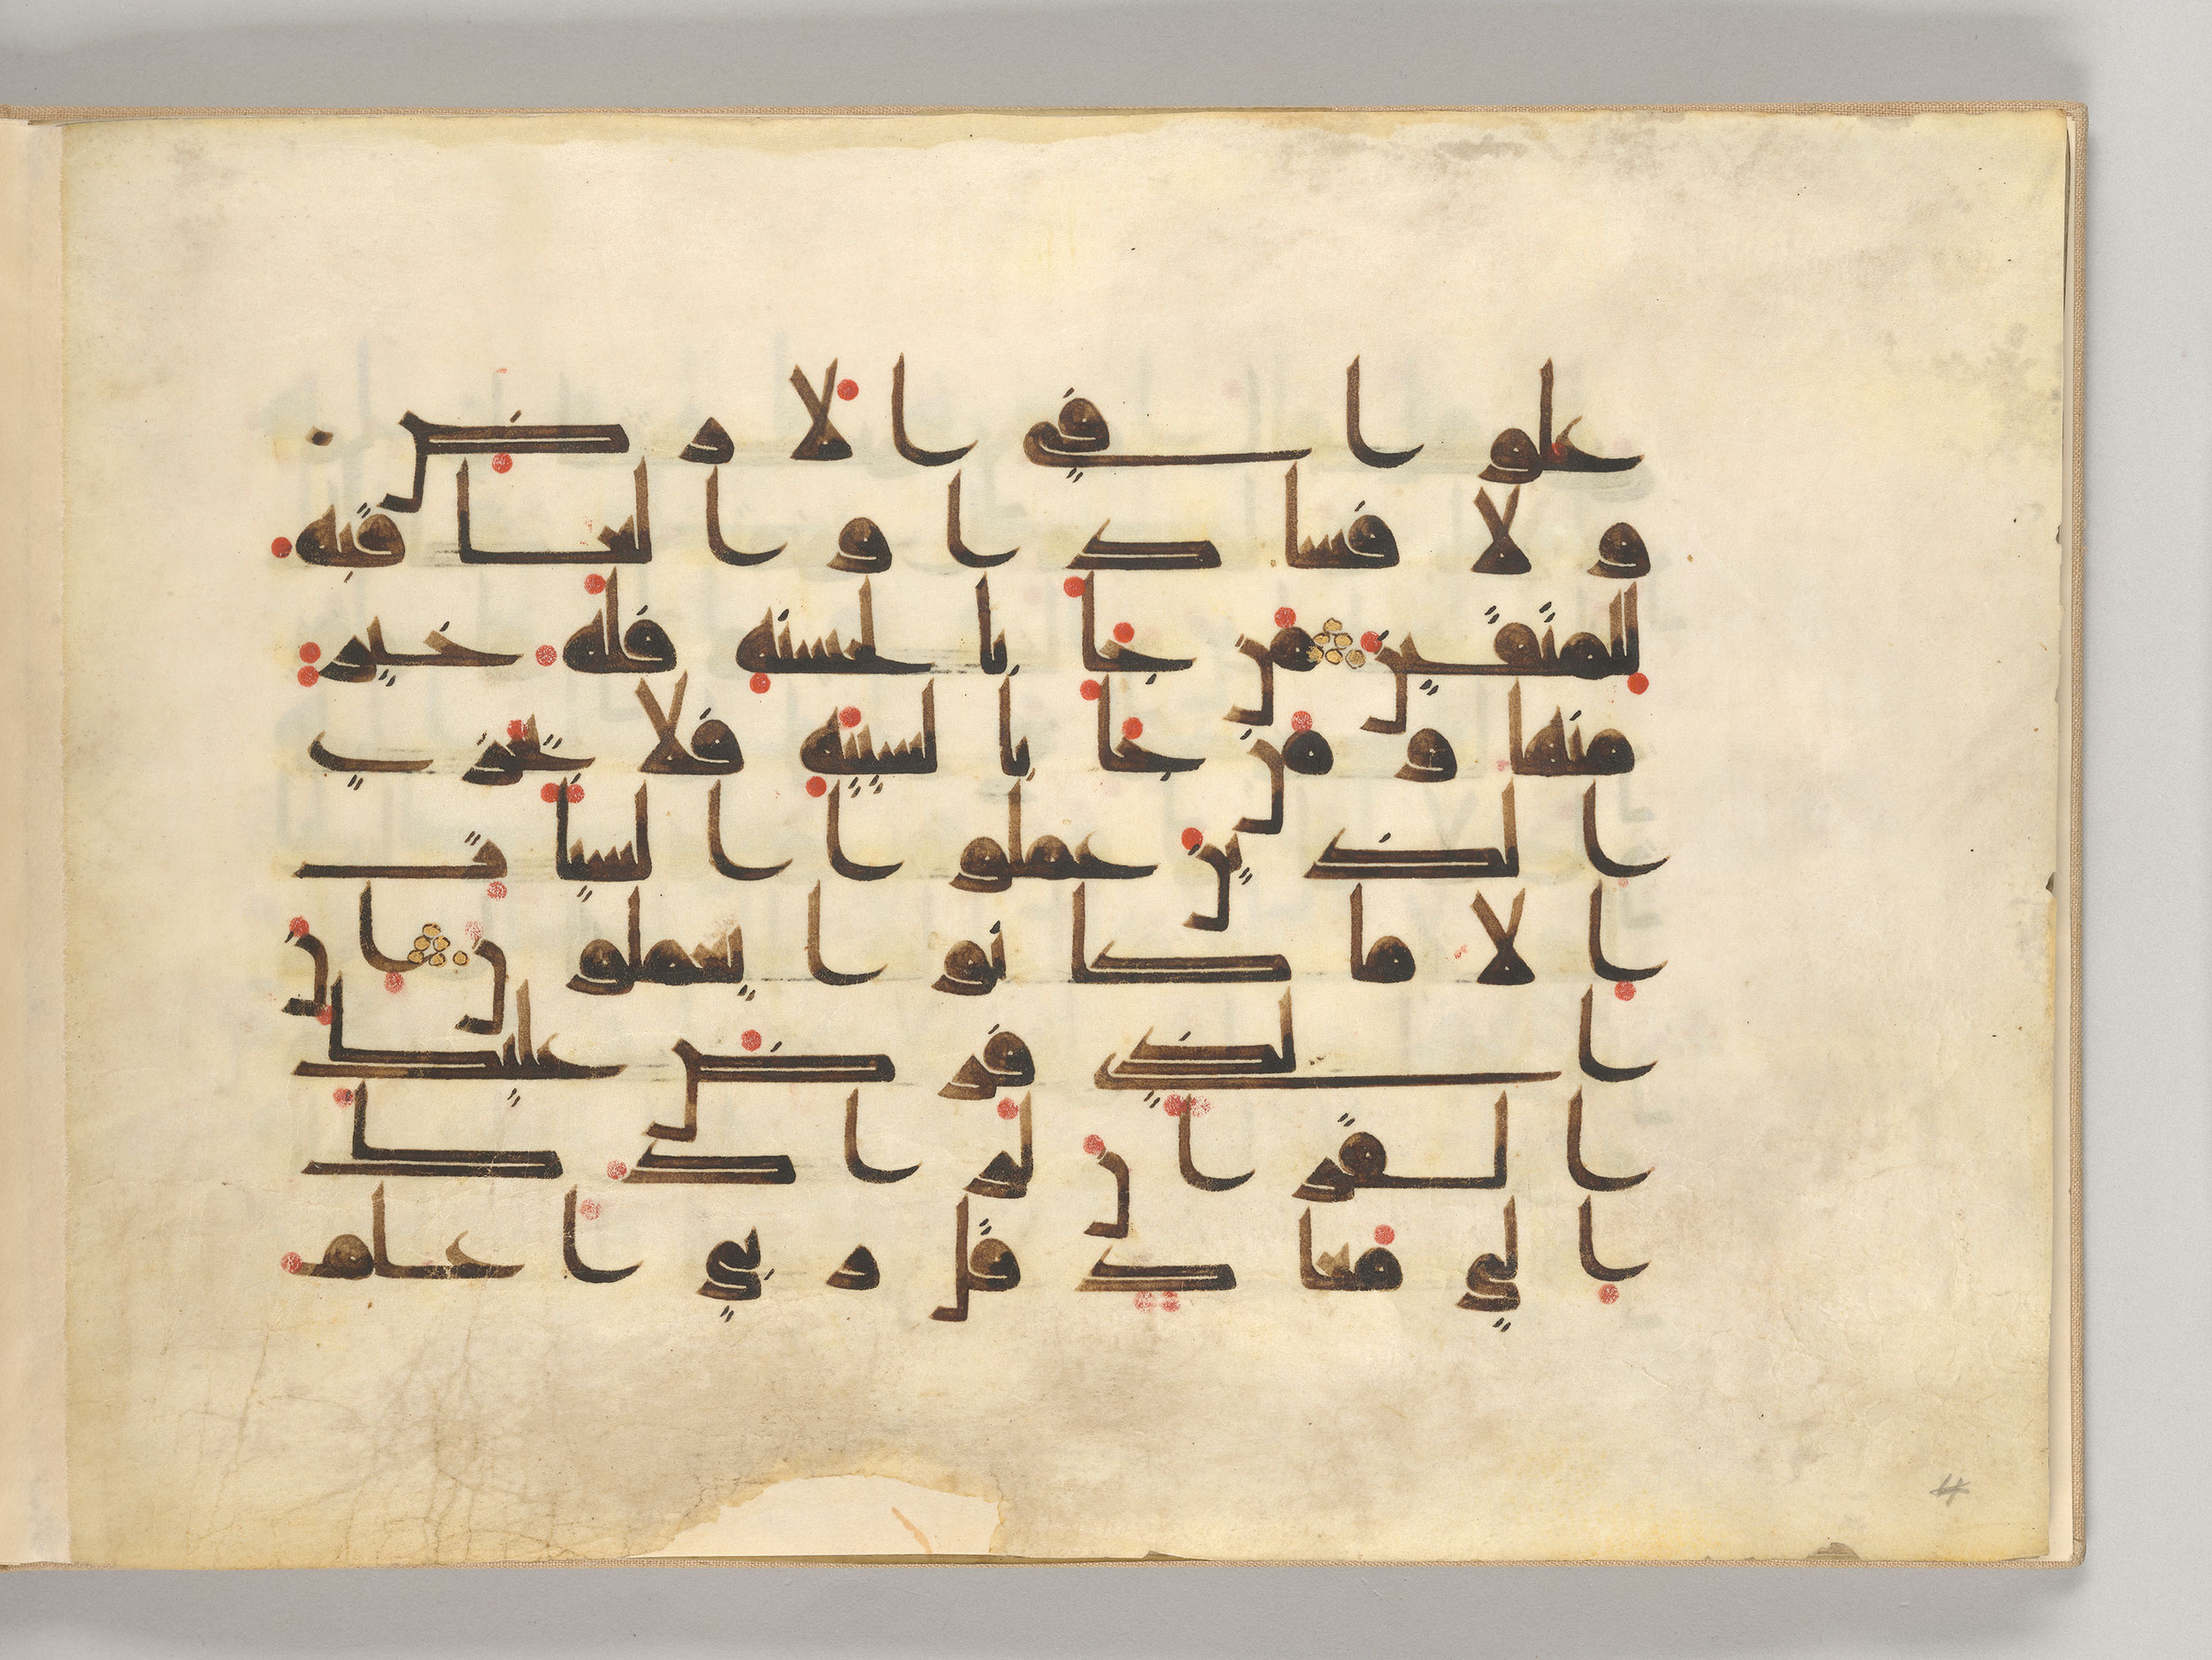 علوا في الارض
ولا فسادا والعاقبه
للمتقين من جا بالحسنه فله خير
منها ومن جا بالسيئه فلا يجزي
الذين عملوا السيات
الا ما كانوا يعملون ان
الذي فرض عليك
القران لرادك
الي معاد قل ربي اعلم
4